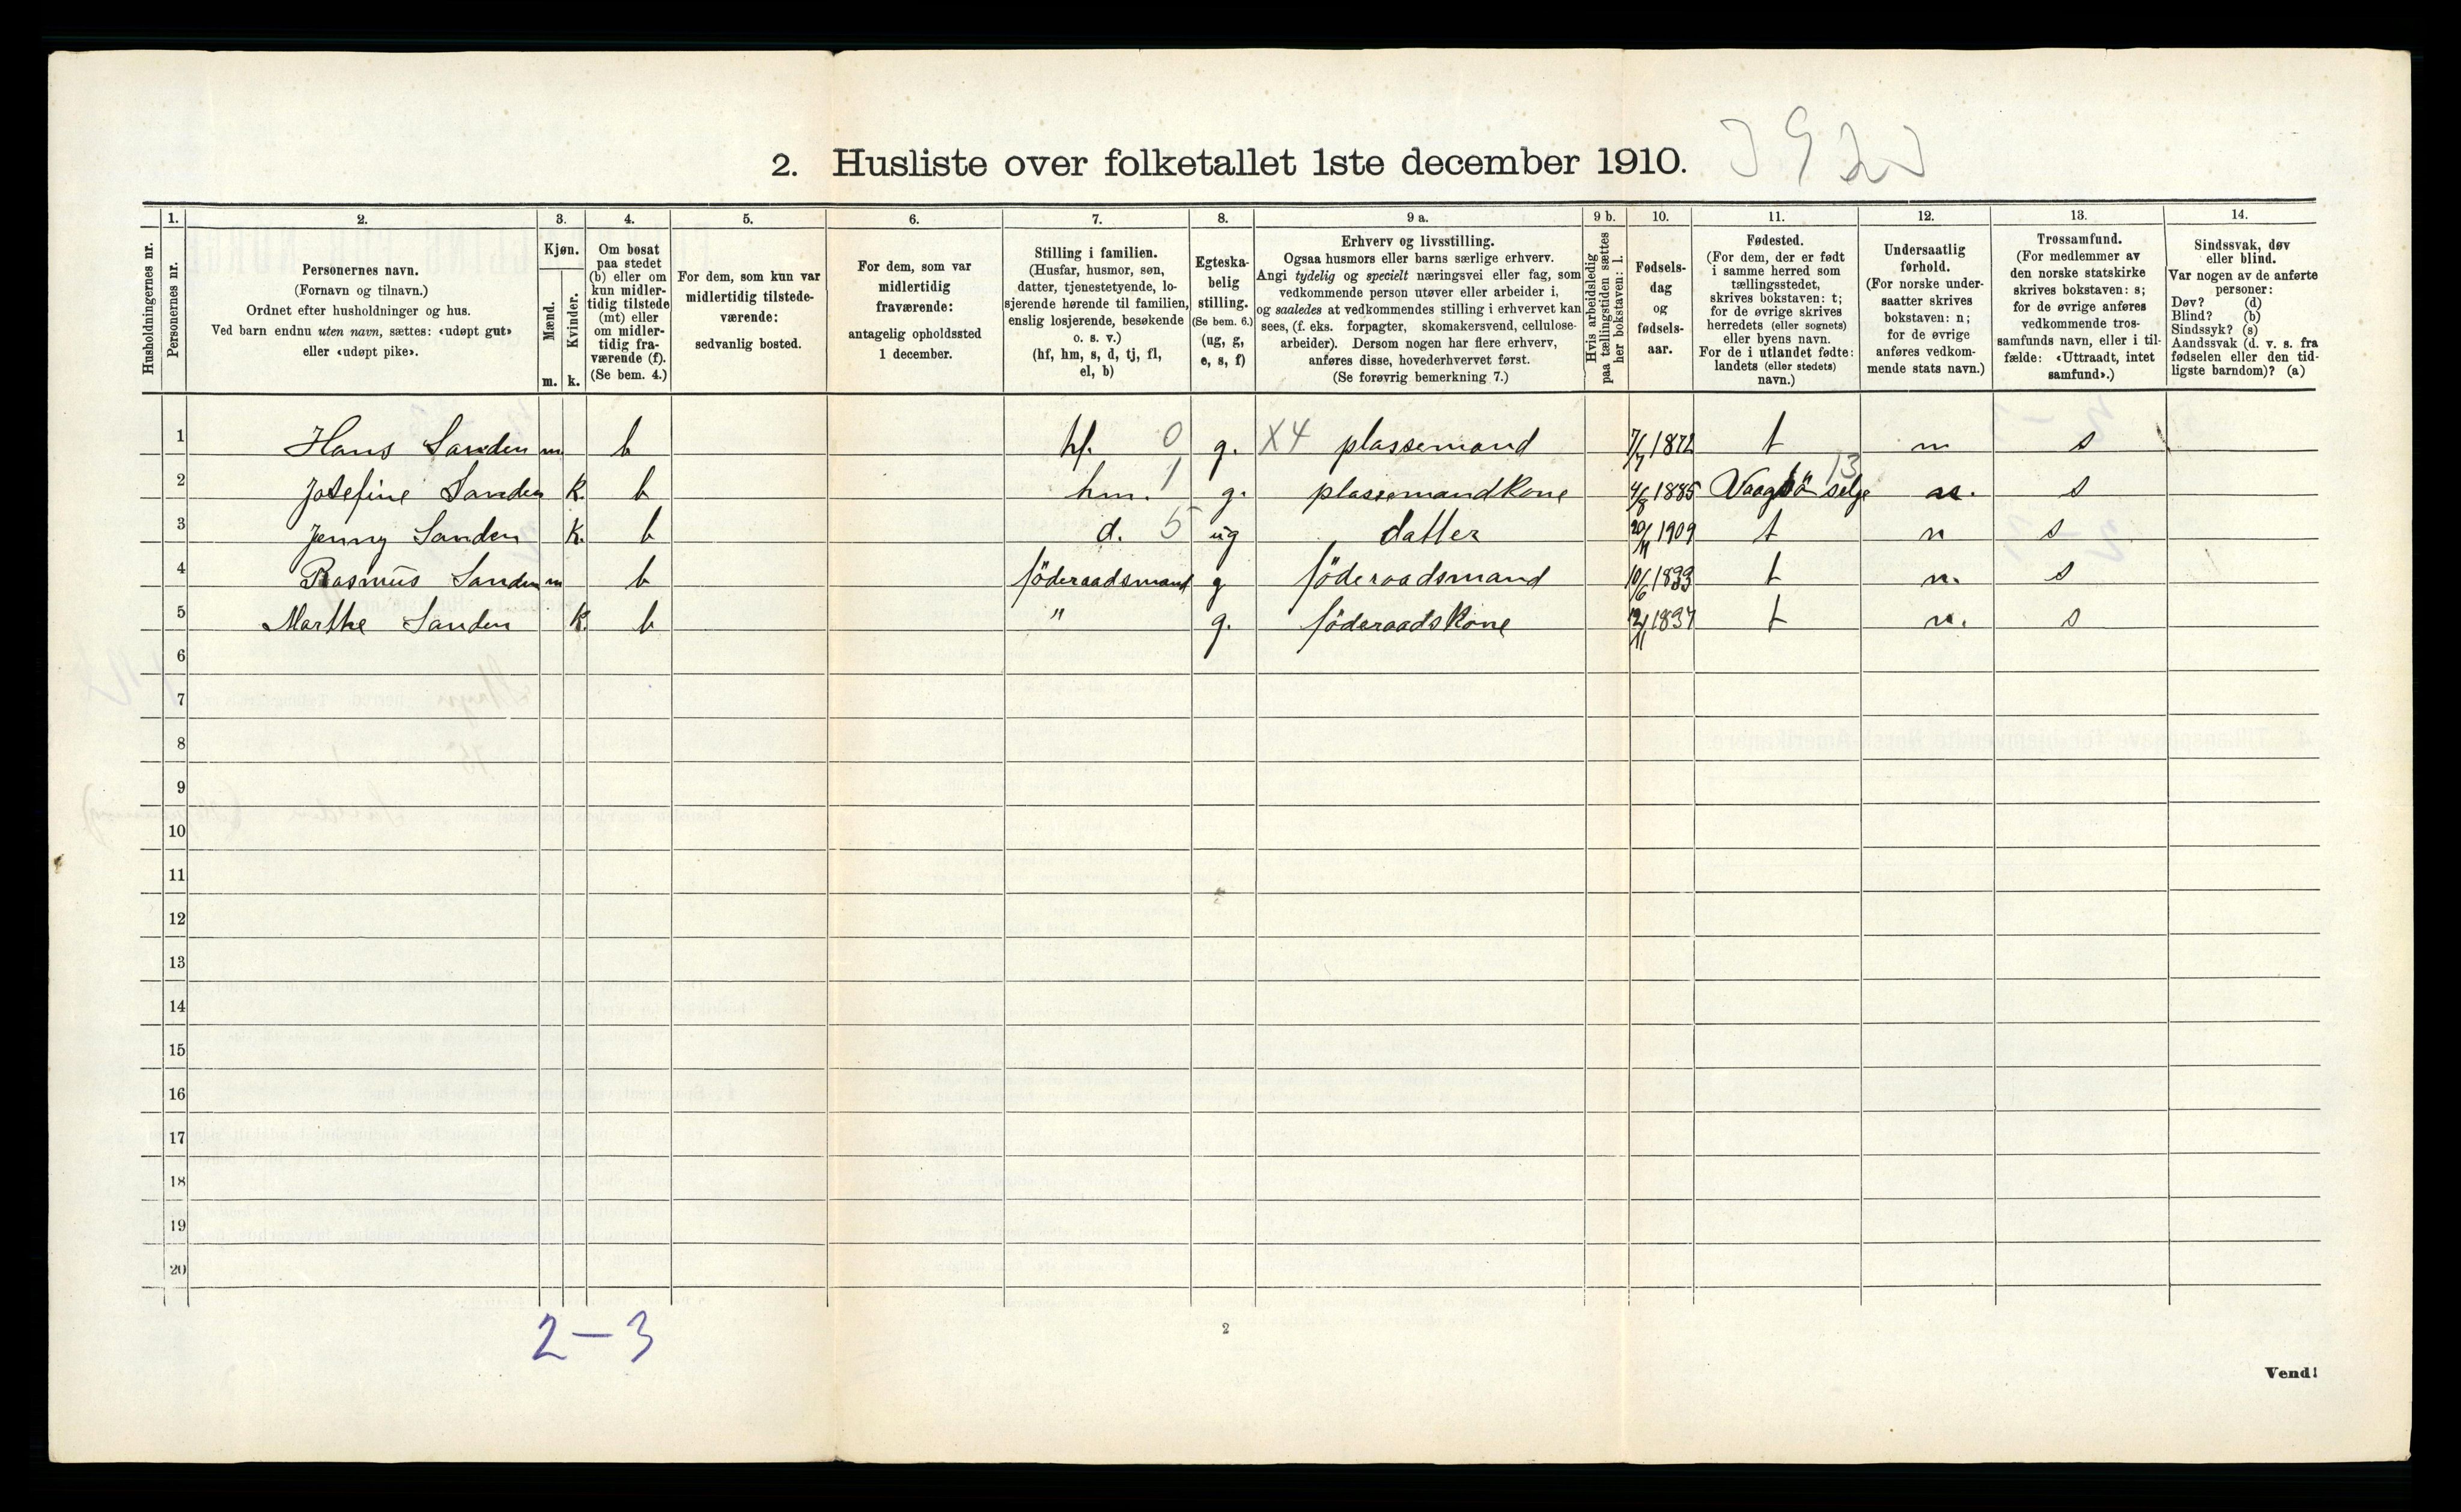 2. Husliste over folketallet 1ste december 1910.
Husholdningernes nr.
1.
Personernes nr.
2.
Personernes navn.
(Fornavn og tilnavn.)
Ordnet efter husholdninger og hus.
Ved barn endnu uten navn, sættes: «udøpt gut»
eller «udøpt pike».
3.
Kjøn.
Mænd.
Kvinder.
m. k.
4.
Om bosat
paa stedet
(b) eller om
kun midler-
tidig tilstede
(mt) eller
om midler-
tidig fra-
værende (f).
(Se bem. 4.)
5.
For dem, som kun var
midlertidig tilstede-
værende:
sedvanlig bosted.
6.
For dem, som var
midlertidig
fraværende:
antagelig opholdssted
1 december.
7.
Stilling i familien.
(Husfar, husmor, søn,
datter, tjenestetyende, lo-
sjerende hørende til familien,
enslig losjerende, besøkende
o. s. v.)
(hf, hm, s, d, tj, fl,
el, b)
8.
Egteska-
belig
stilling.
(Se bem. 6.)
(ug, g,
e, s, f)
9 a.
Erhverv og livsstilling.
Ogsaa husmors eller barns særlige erhverv.
Angi tydelig og specielt næringsvei eller fag, som
vedkommende person utøver eller arbeider i,
og saaledes at vedkommendes stilling i erhvervet kan
sees, (f. eks. forpagter, skomakersvend, cellulose-
arbeider). Dersom nogen har flere erhverv,
anføres disse, hovederhvervet først.
(Se forøvrig bemerkning 7.)
9 b.
Hvis arbeidsledig
paa tællingstiden sættes
her bokstaven: l.
10.
Fødsels-
dag
og
fødsels-
aar.
11.
Fødested.
(For dem, der er født
i samme herred som
tællingsstedet,
skrives bokstaven: t;
for de øvrige skrives
herredets (eller sognets)
eller byens navn.
For de i utlandet fødte:
landets (eller stedets)
navn.)
12.
Undersaatlig
forhold.
(For norske under-
saatter skrives
bokstaven: n;
for de øvrige
anføres vedkom-
mende stats navn.)
13.
Trossamfund.
(For medlemmer av
den norske statskirke
skrives bokstaven: s;
for de øvrige anføres
vedkommende tros-
samfunds navn, eller i til-
fælde: «Uttraadt, intet
samfund».)
14.
Sindssvak, døv
eller blind.
Var nogen av de anførte
personer:
Døv? (d)
Blind? (b)
Sindssyk? (s)
Aandssvak (d. v. s. fra
fødselen eller den tid-
ligste barndom)? (a)
1 Hans Sanden m b hf. 0 g. X4 plassemand 7/7 1872 t n s
2 Josefine Sanden k. b hm. 1 g. plassemandkone 4/8 1885 Vaagsö selje 13 n. s
3 Jenny Sanden k. b d. 5 ug datter 20/11 1909 t n s
4 Rasmus Sanden m b föderaadsmand g föderaadsmand 10/6 1833 t n. s
5 Marthe Sanden k b " g. föderaadskone 12/11 1837 t n. s
6
7
8
9
10
11
12
13
14
15
16
17
18
19
20
2-3
2
Vend!